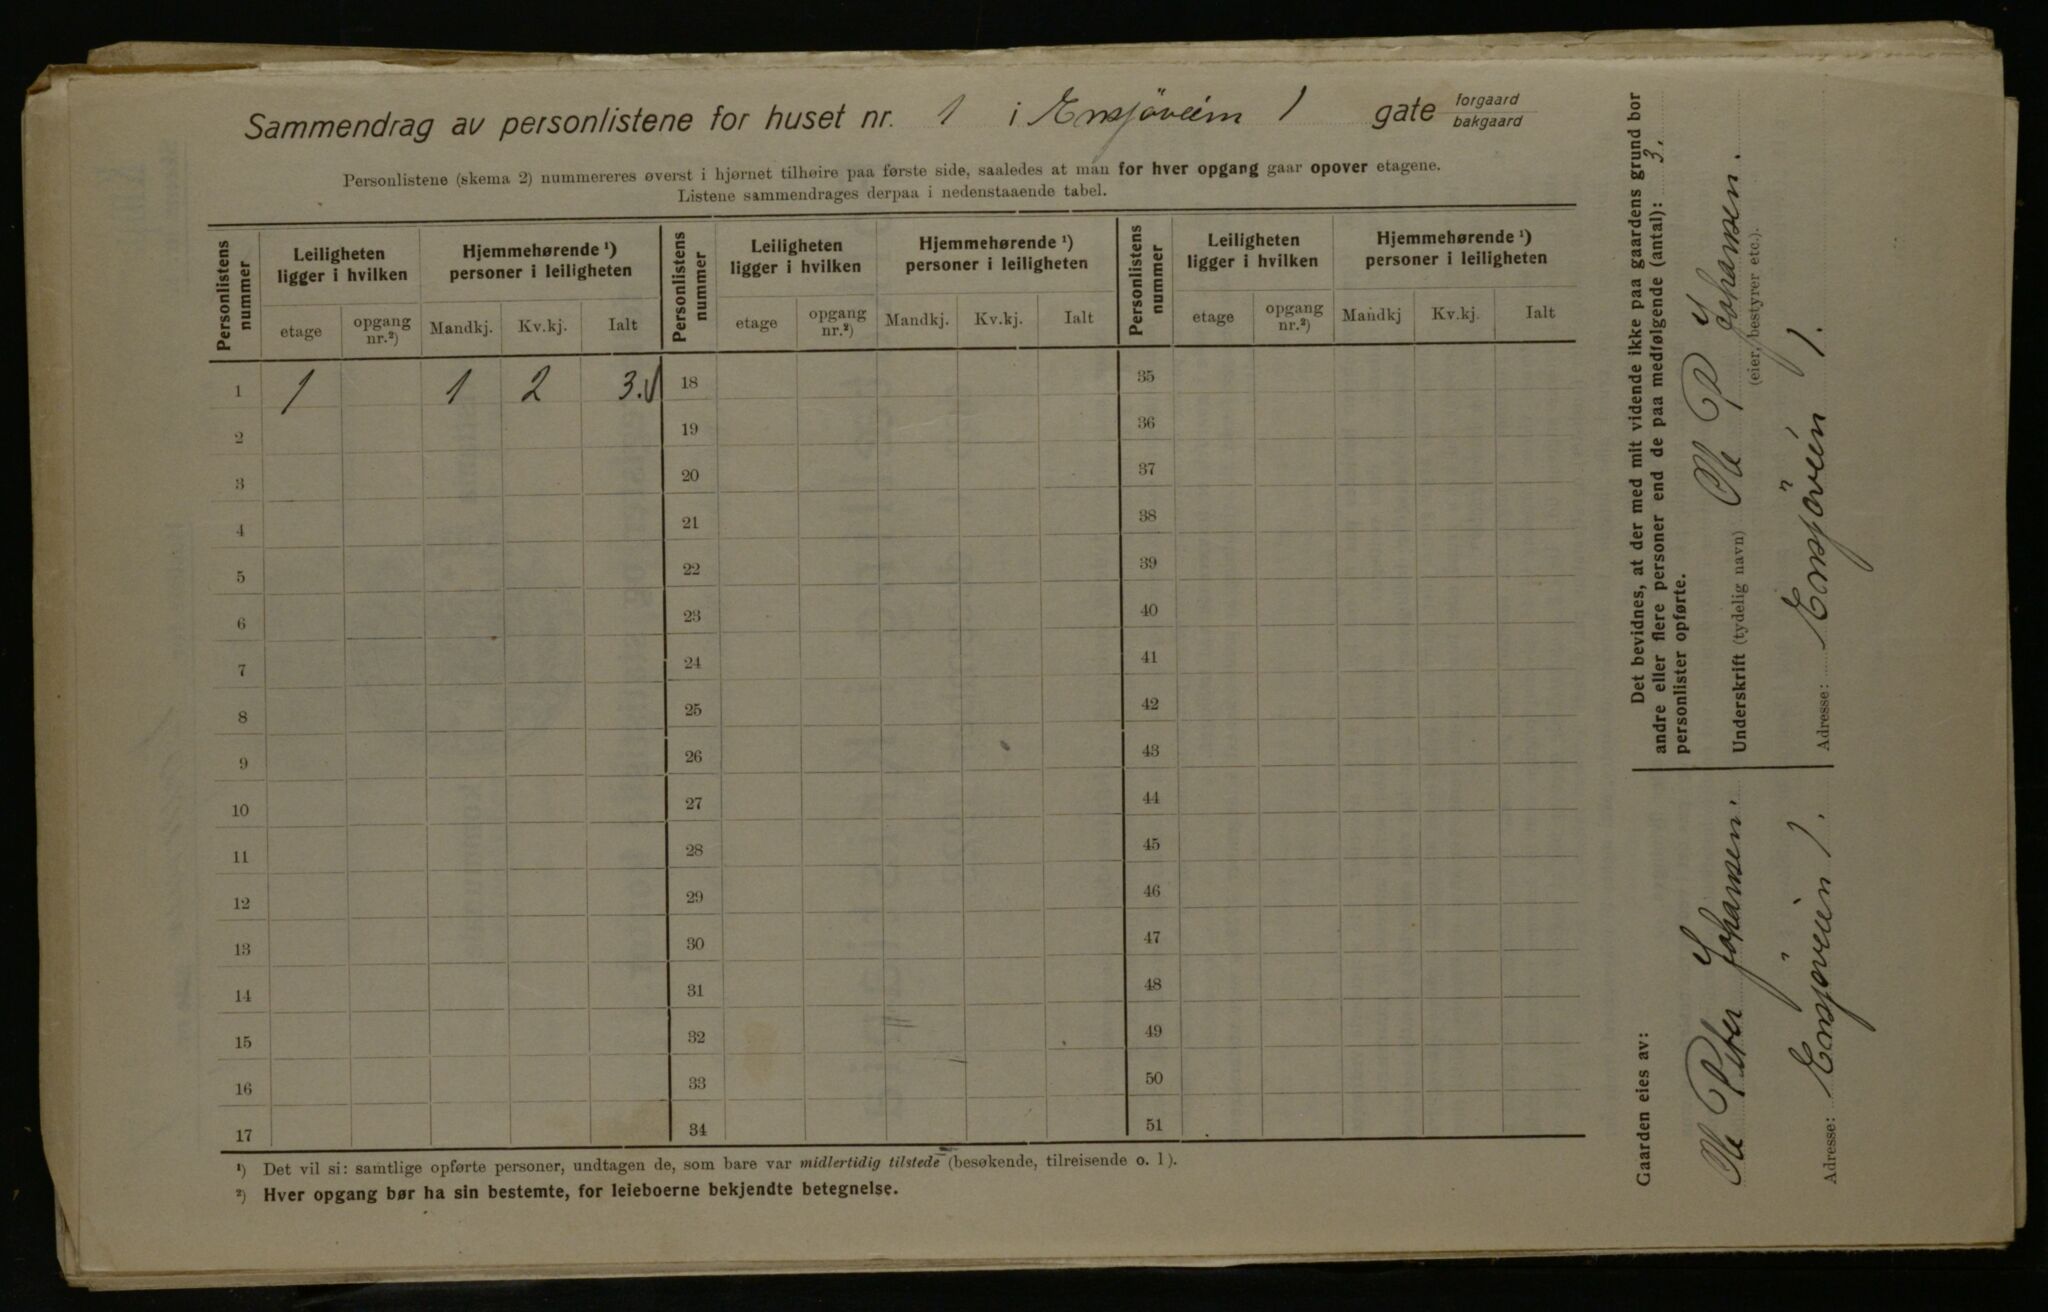 Sammendrag av personlistene for huset nr. 1 i Ensjöveien 1 gate forgaard bakgaard
Personlistene (skema 2) nummereres øverst i hjørnet tilhøire paa første side, saaledes at man for hver opgang gaar opover etagene.
Listene sammendrages derpaa i nedenstaaende tabel.
Personlistens nummer | Leiligheten ligger i hvilken | Hjemmehørende ¹) personer i leiligheten | Personlistens nummer | Leiligheten ligger i hvilken | Hjemmehørende ¹) personer i leiligheten | Personlistens nummer | Leiligheten ligger i hvilken | Hjemmehørende ¹) personer i leiligheten
etage | opgang nr.²) | Mandkj. | Kv.kj. | Ialt | etage | opgang nr.²) | Mandkj. | Kv.kj. | Ialt | etage | opgang nr.²) | Mandkj | Kv.kj. | Ialt
1 | 1 | 1 | 2 | 3. | 18 | 35
2 | 19 | 36
3 | 20 | 37
4 | 21 | 38
5 | 22 | 39
6 | 23 | 40
7 | 24 | 41
8 | 25 | 42
9 | 26 | 43
10 | 27 | 44
11 | 28 | 45
12 | 29 | 46
13 | 30 | 47
14 | 31 | 48
15 | 32 | 49
16 | 33 | 50
17 | 34 | 51
¹) Det vil si: samtlige opførte personer, undtagen de, som bare var midlertidig tilstede (besøkende, tilreisende o. l).
²) Hver opgang bør ha sin bestemte, for leieboerne bekjendte betegnelse.
Det bevidnes, at der med mit vidende ikke paa gaardens grund bor
andre eller flere personer end de paa medfølgende (antal): 3.
personlister opførte.
Underskrift (tydelig navn) Ole P Johansen.
(eier, bestyrer etc.).
Adresse: Ensjöveien 1.
Gaarden eies av:
Ole Peter Johansen.
Adresse: Ensjöveien 1.